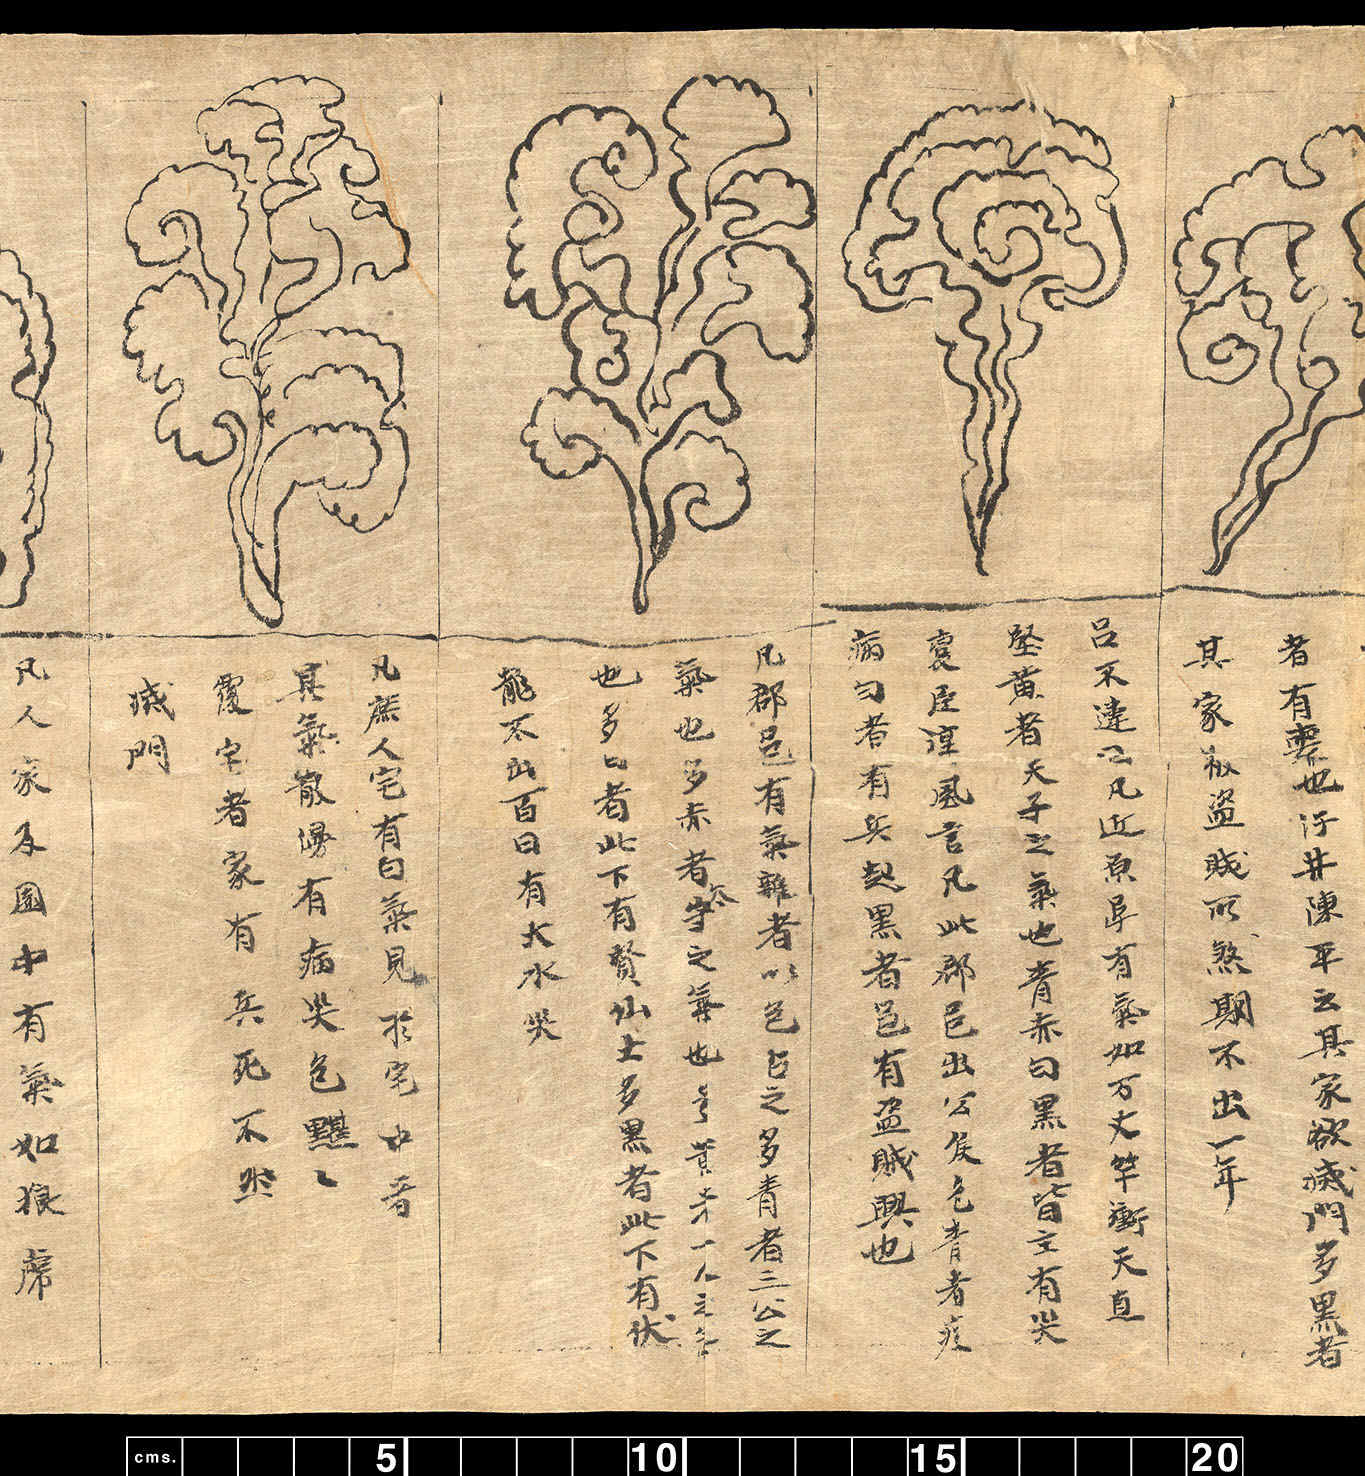 者有雲也汙井陳平云其家欲滅門多黑者
其家被盜賊所煞期不出一年
呂不違云凡近原阜有氣如万丈竿衝天直
竪黃者天子之氣也青赤白黑者皆主有灾
臣淳風言凡此郡邑出公侯色青者疫
病白者有兵起黑者邑有盜賊興也
凡郡邑有氣雜者以色占之多青者三公之
氣也多赤者守之氣也多黃者一人之氣
也多白者此下有賢仙士多黑者此下有伏
龍不出百日有大水灾
凡庶人宅有白氣見於宅中者
其氣散漫有病哭色
覆宅者家有兵死不然
滅門
凡人家及園中有氣如狼虎
cms. 5 10 15 20